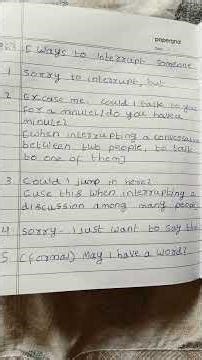 papergrid
5 Ways to Interrupt Someone
1 Sorry to interrupt, but
2 Excuse me. could I talk to you
for a minute/do you have a
minute?
[when interrupting a conversatio
between two people, to talk
to one of them]
3 Could I jump in here?
[use this when interrupting a
discussion among many people
4 Sorry - I just want to say tha
5 (formal) May I have a word?